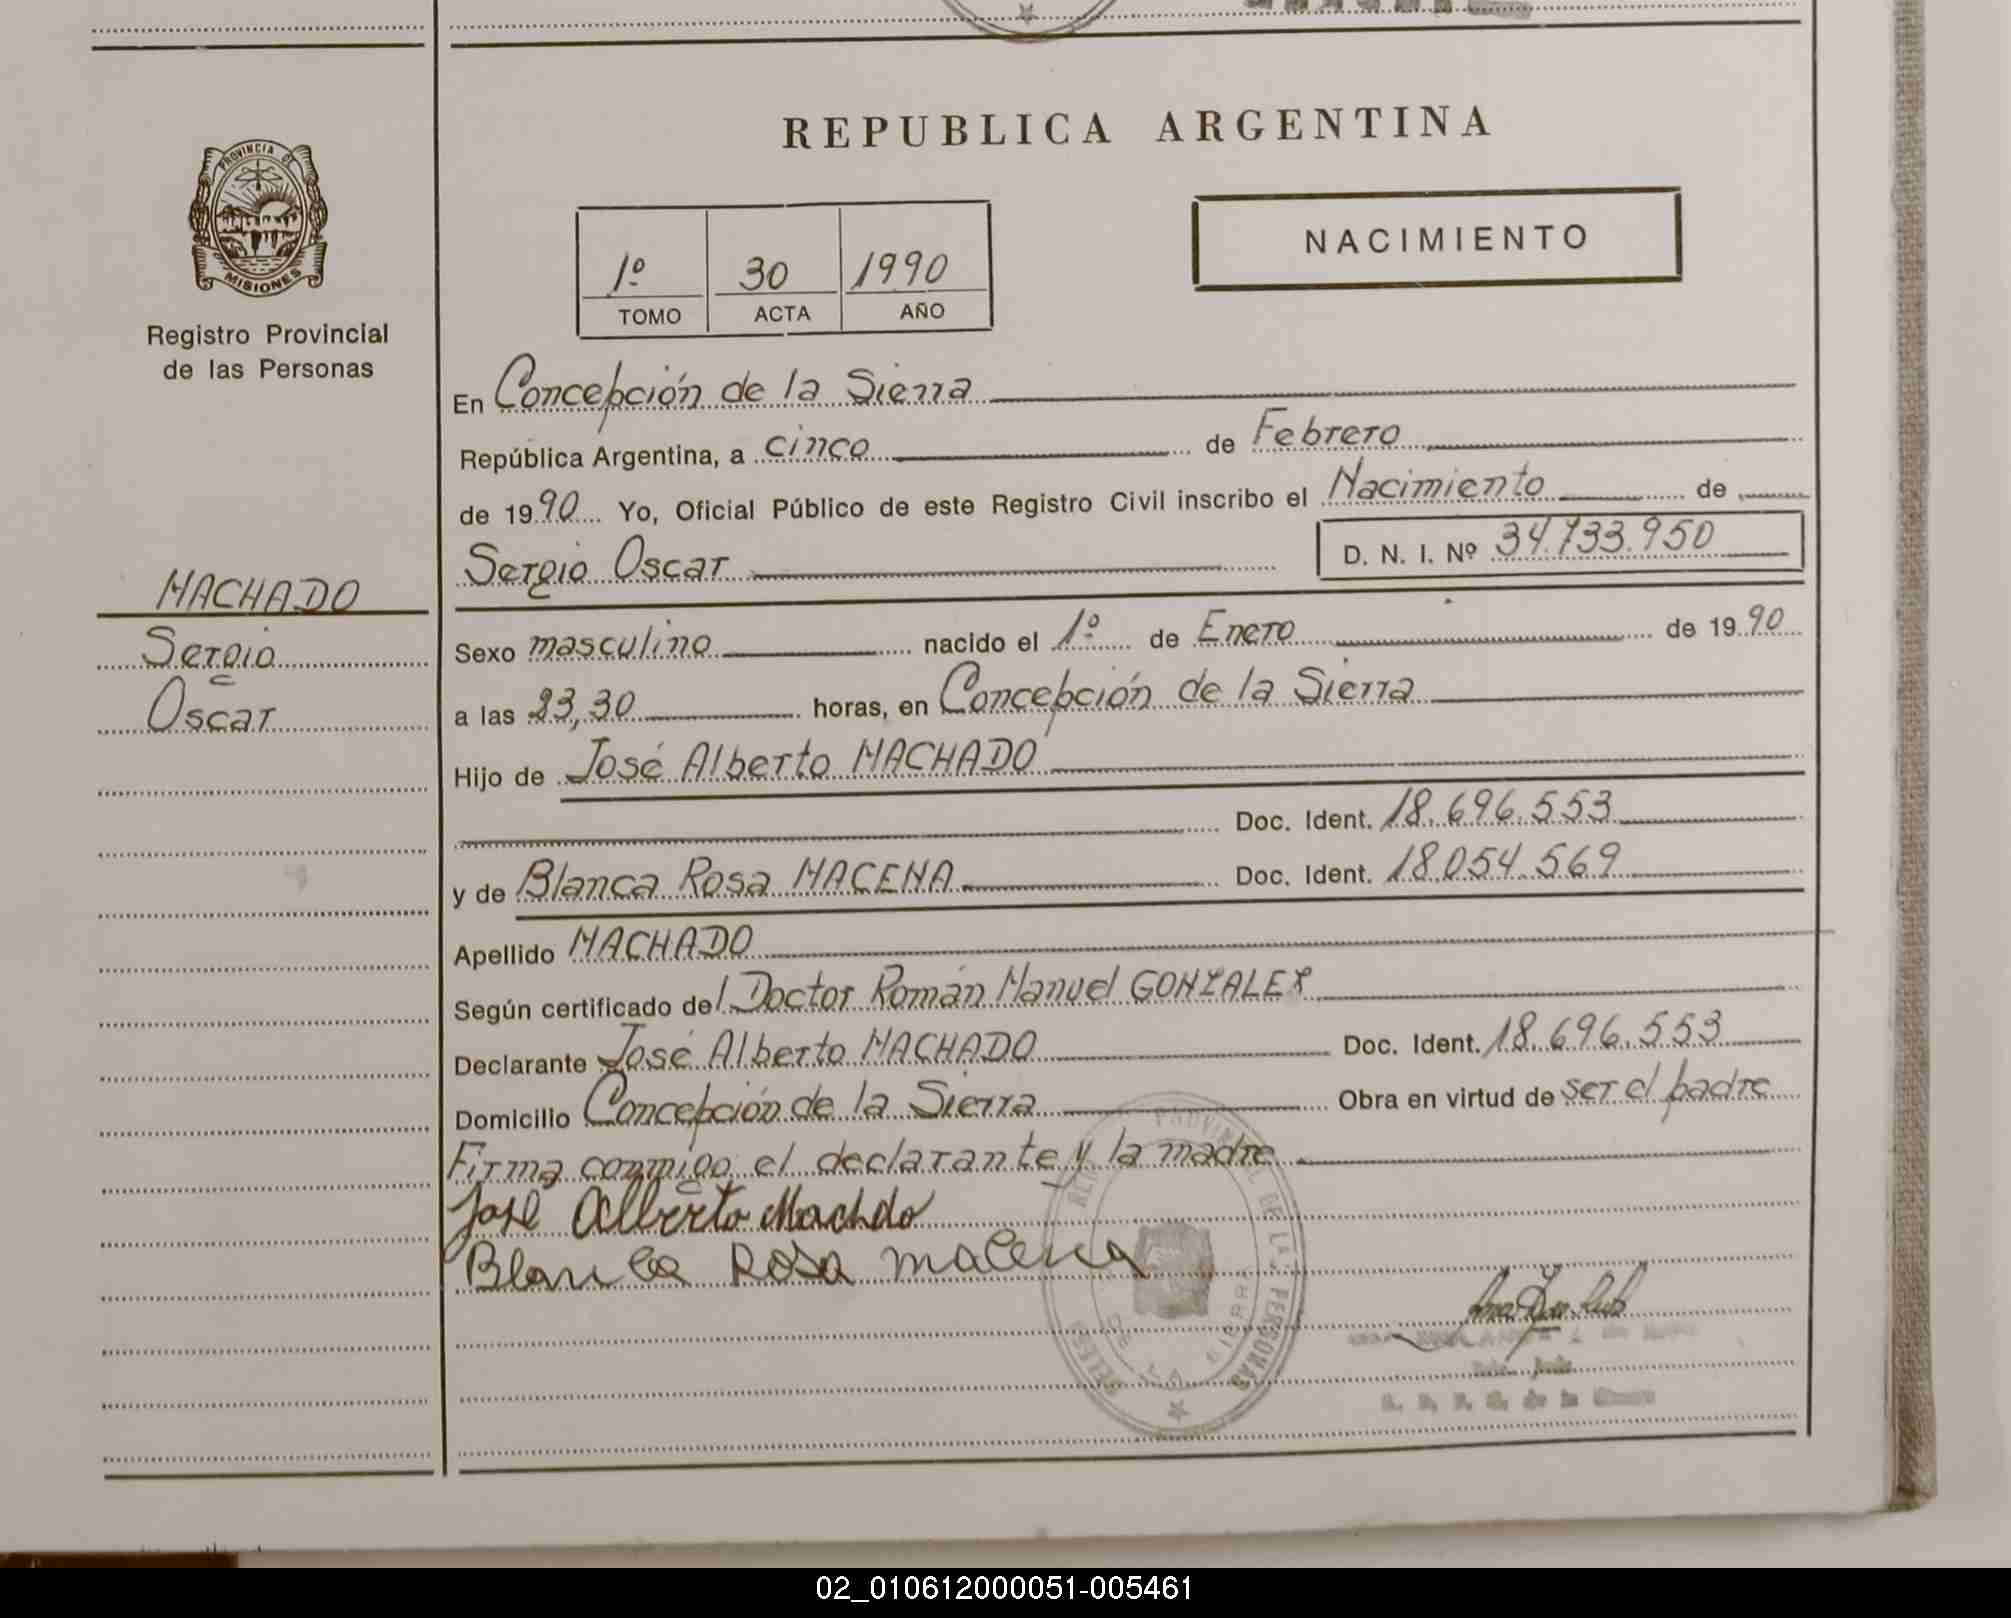 REPUBLICA ARGENTINA
PROVINCIA DE
MISIONES
Registro Provincial
de las Personas
MACHADO
Sergio
Oscar
1º 30 1990
TOMO ACTA AÑO
NACIMIENTO
En Concepción de la Sierra
República Argentina, a cinco de Febrero
de 1990 Yo, Oficial Público de este Registro Civil inscribo el Nacimiento de
Sergio Oscar D. N. I. Nº 34.733.950
Sexo masculino nacido el 1º de Enero de 1990
a las 23,30 horas, en Concepción de la Sierra
Hijo de José Alberto MACHADO
Doc. Ident. 18.696.553
y de Blanca Rosa MACENA Doc. Ident. 18.054.569
Apellido MACHADO
Según certificado del Doctor Román Manuel GONZALEZ
Declarante José Alberto MACHADO Doc. Ident. 18.696.553
Domicilio Concepción de la Sierra Obra en virtud de ser el padre
Firma conmigo el declarante y la madre
José Alberto Machdo
Blanca Rosa macena
PROVINCIAL DE LAS PERSONAS
02_010612000051-005461